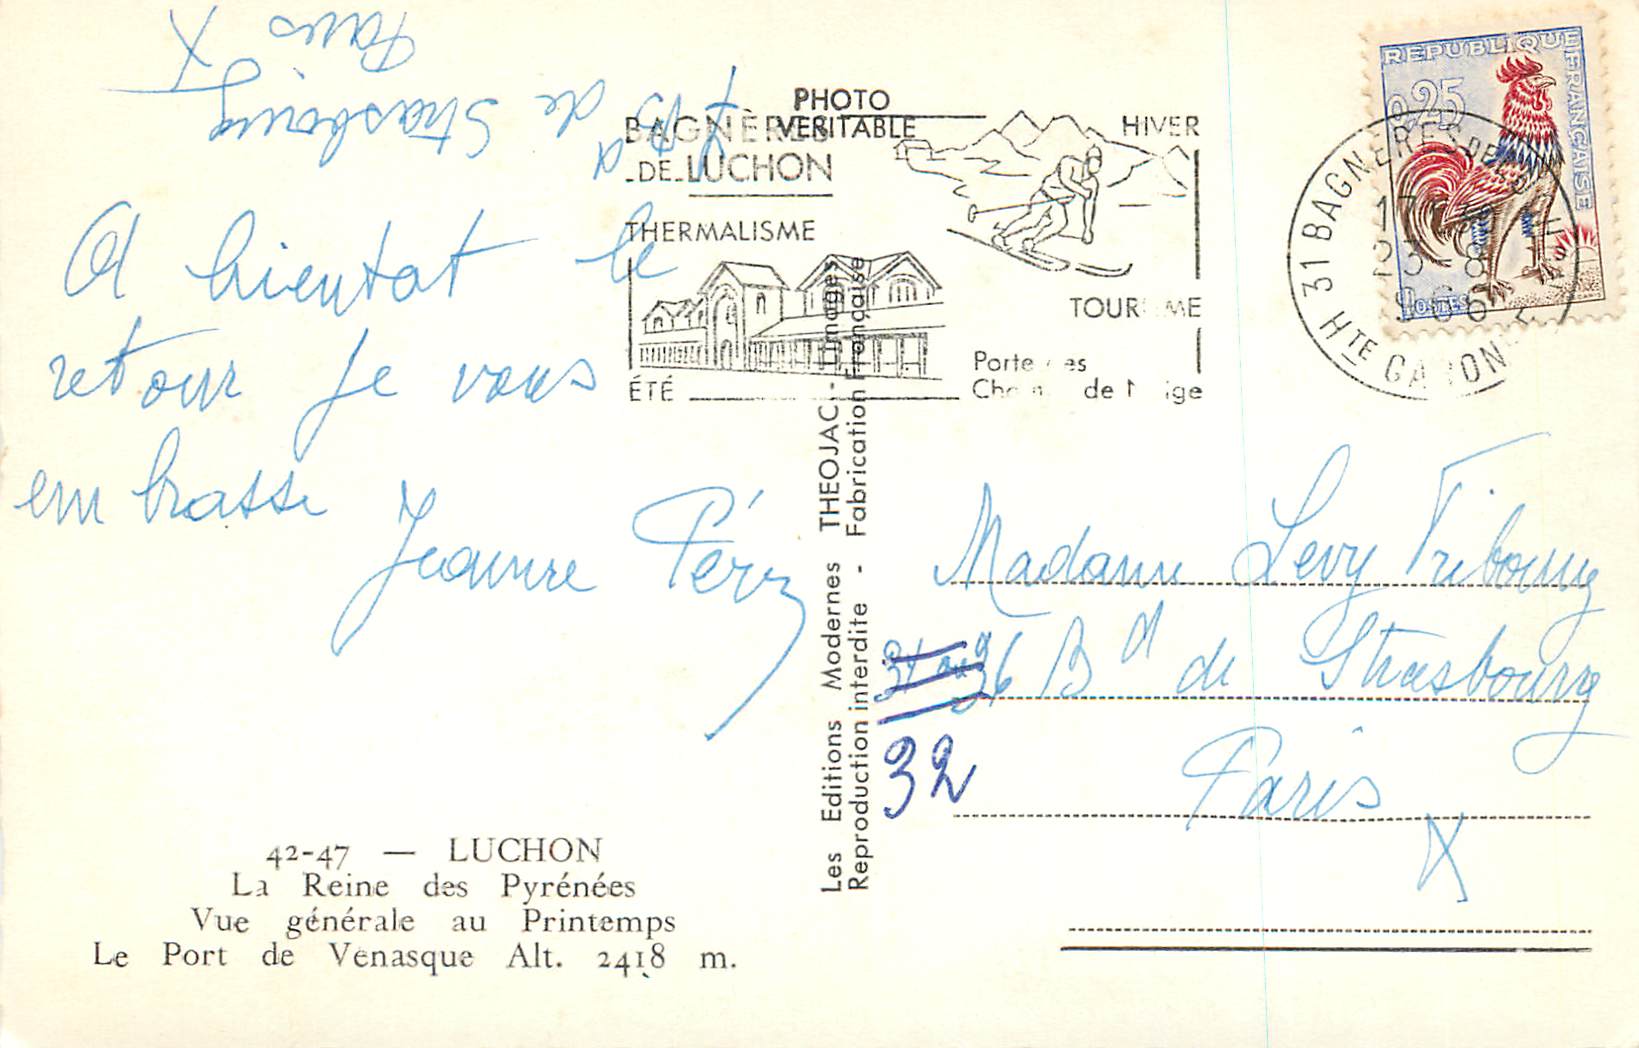 A bientat le
retour je vous
embrasse
Jeanne Péry
de Strasbourg
Paris
X
PHOTO
VERITABLE
BAGNÈRES
DE LUCHON
THERMALISME
ÉTÉ
HIVER
TOURISME
Porte des
de Neige
REPUBLIQUE FRANÇAISE
0,25
POSTES
31 BAGNERES DE LUCHON
17
23 - 8
1966
HTE GARONNE
Les Editions Modernes THEOJAC - Limoges
Reproduction interdite - Fabrication Française
Madame Levy Tribourg
31 au 36 Bd de Strasbourg
32
Paris
X
42-47 — LUCHON
La Reine des Pyrénées
Vue générale au Printemps
Le Port de Vénasque Alt. 2418 m.